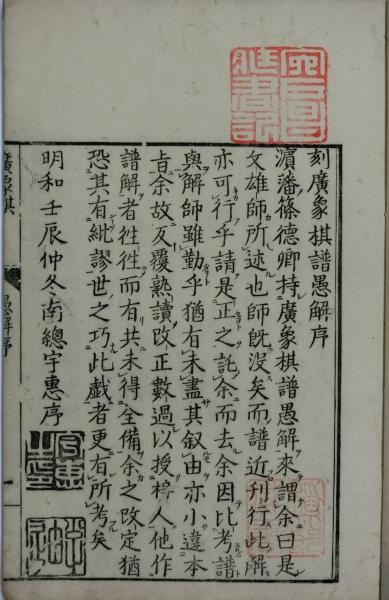 刻廣象棋譜愚解序
濵藩篠德卿持廣象棋譜愚解來謂余曰是
文雄師所述也師既沒矣而譜近刊行此解
亦可行乎請是正之託余而去余因比考譜
與解師雖勤乎猶有未盡其叙由亦小違本
旨余故反覆熟讀改正數過以授梓人他作
譜解者往往而有共未得全備余之改定猶
恐其有紕謬世之巧此戲者更有所考矣
明和壬辰仲冬南總宇惠序
廣象棋
愚解序